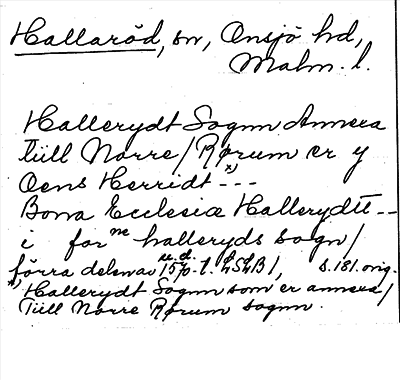 Hallaröd, sn, Onsjö hd,
Malm. l.
Hallerydt Sognn Annexa
tiill Norre/Rørum er y
Oens Herridt x) ---
Bona Ecclesiæ Hallerydtt --
i for ne halleryds sogn/
förra delen av 157o-t. LSLB1, s.181. orig.
x) Hallerydt Sognn som er annexa/
Tiill Norre Rørum sognn.